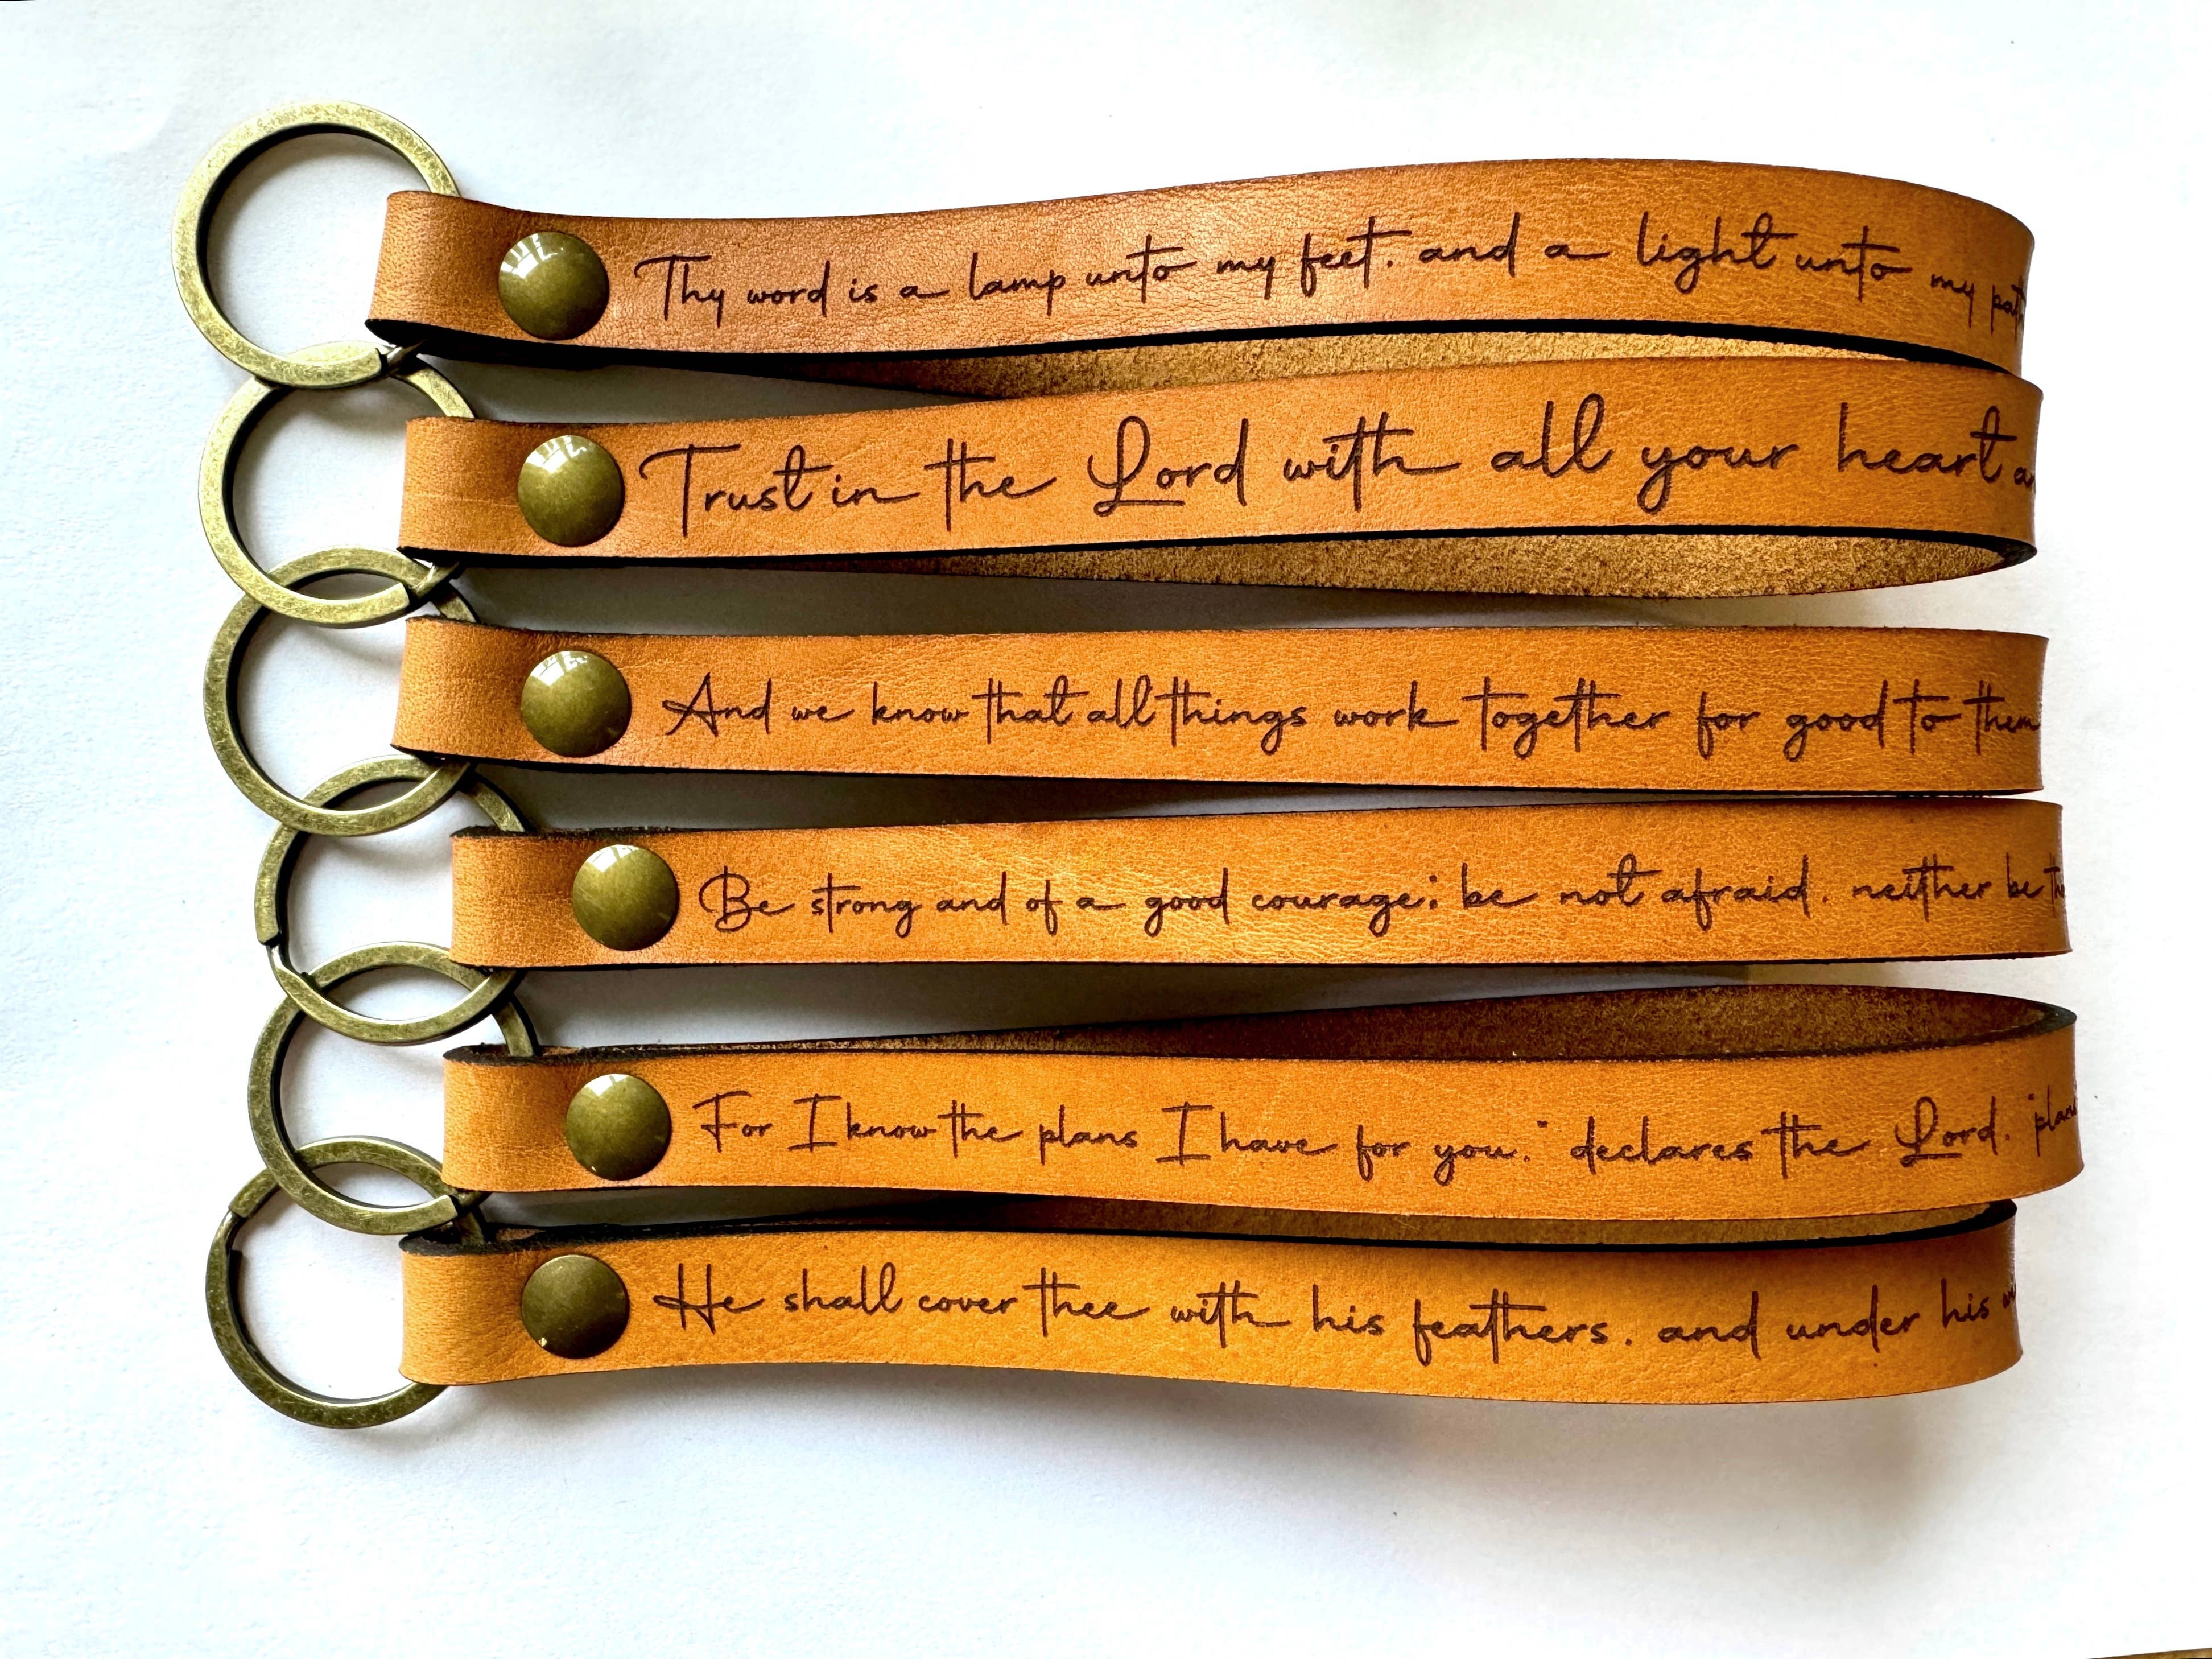 Thy word is a lamp unto my feet, and a light unto my
Trust in the Lord with all your heart
And we know that all things work together for good to them
Be strong and of a good courage; be not afraid, neither be
For I know the plans I have for you," declares the Lord, "plans
He shall cover thee with his feathers, and under his